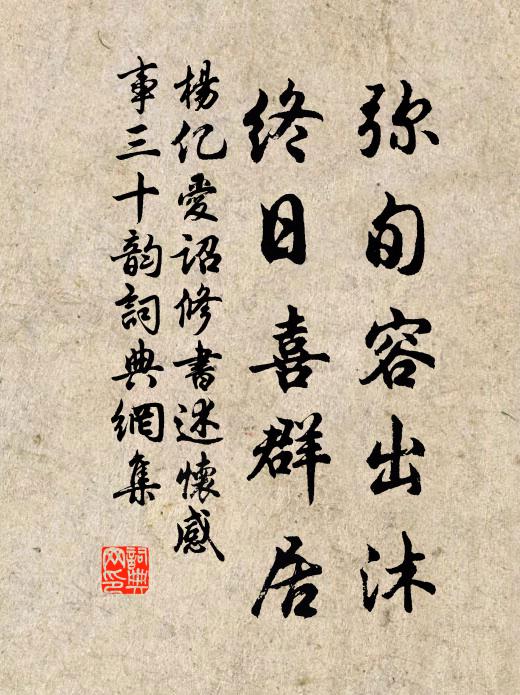 弥旬容出沐
终日喜群居
楊亿爱诏修書述懷感
事三十韵詞典網集
詞典網印